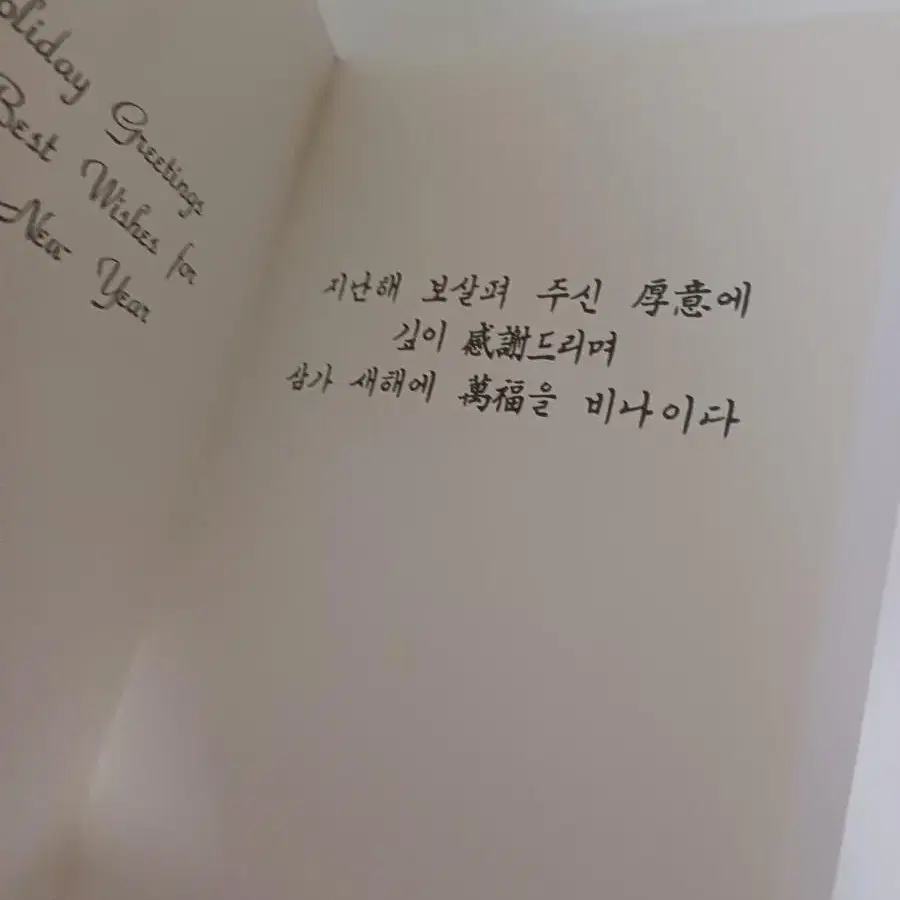 Greetings
Best Wishes for
New Year
지난해 보살펴 주신 厚意에
깊이 感謝드리며
삼가 새해에 萬福을 비나이다